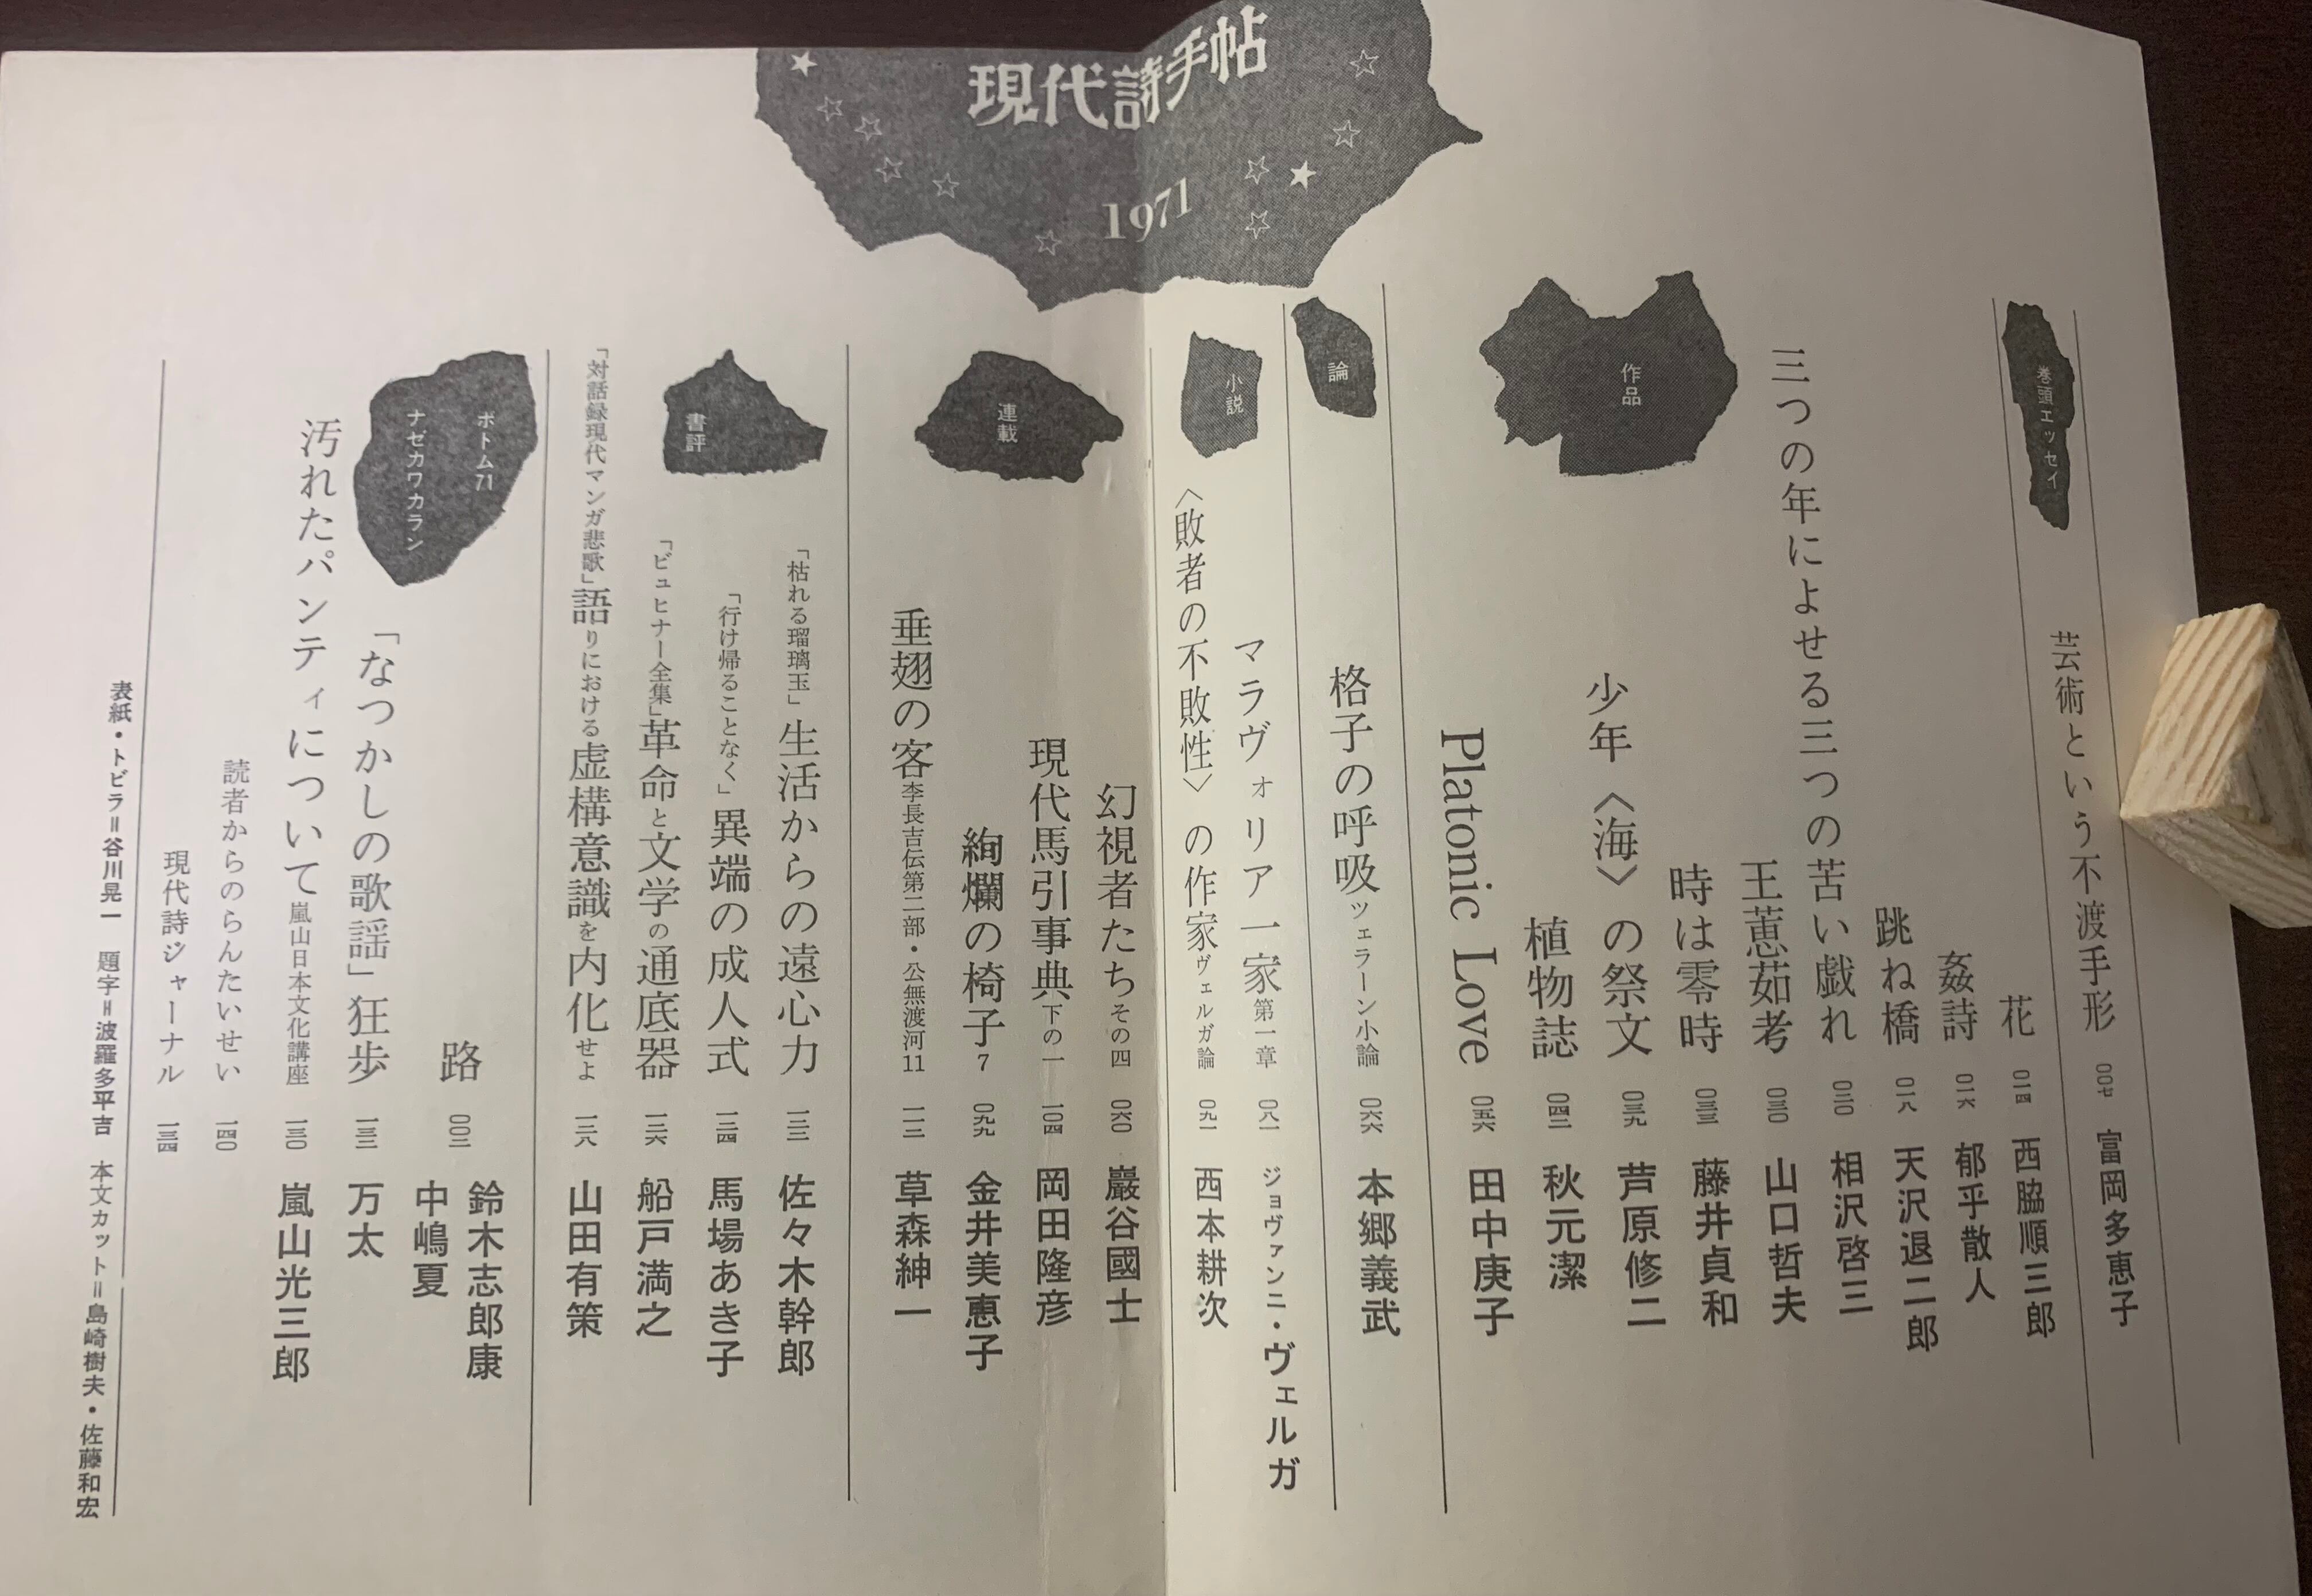 現代詩手帖
1971
巻頭エッセイ
芸術という不渡手形 〇〇七 富岡多恵子
作品
花 〇一四 西脇順三郎
姦詩 〇一六 郁乎散人
跳ね橋 〇一八 天沢退二郎
三つの年によせる三つの苦い戯れ 〇二〇 相沢啓三
王蒽茹考 〇三〇 山口哲夫
時は零時 〇三三 藤井貞和
少年〈海〉の祭文 〇三九 芦原修二
植物誌 〇四二 秋元潔
Platonic Love 〇五六 田中庚子
論
格子の呼吸ツェラーン小論 〇六六 本郷義武
小説
マラヴォリア一家第一章 〇八一 ジョヴァンニ・ヴェルガ
〈敗者の不敗性〉の作家ヴェルガ論 〇九一 西本耕次
連載
幻視者たちその四 〇六〇 巖谷國士
現代馬引事典下の一 一〇四 岡田隆彦
絢爛の椅子7 〇九九 金井美恵子
垂翅の客李長吉伝第二部・公無渡河11 一一二 草森紳一
書評
「枯れる瑠璃玉」生活からの遠心力 一二二 佐々木幹郎
「行け帰ることなく」異端の成人式 一二四 馬場あき子
「ビュヒナー全集」革命と文学の通底器 一二六 船戸満之
「対話録現代マンガ悲歌」語りにおける虚構意識を内化せよ 一二八 山田有策
ボトム71
ナゼカワカラン
路 〇〇二 鈴木志郎康
中嶋夏
「なつかしの歌謡」狂歩 一三二 万太
汚れたパンティについて嵐山日本文化講座 一三〇 嵐山光三郎
読者からのらんたいせい 一四〇
現代詩ジャーナル 一三四
表紙・トビラ＝谷川晃一 題字＝波羅多平吉 本文カット＝島崎樹夫・佐藤和宏